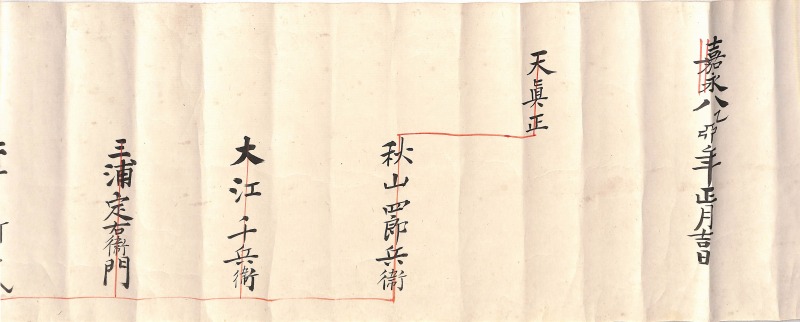 嘉永八乙卯年正月吉日
天眞正
秋山四郎兵衛
大江千兵衛
三浦定右衛門